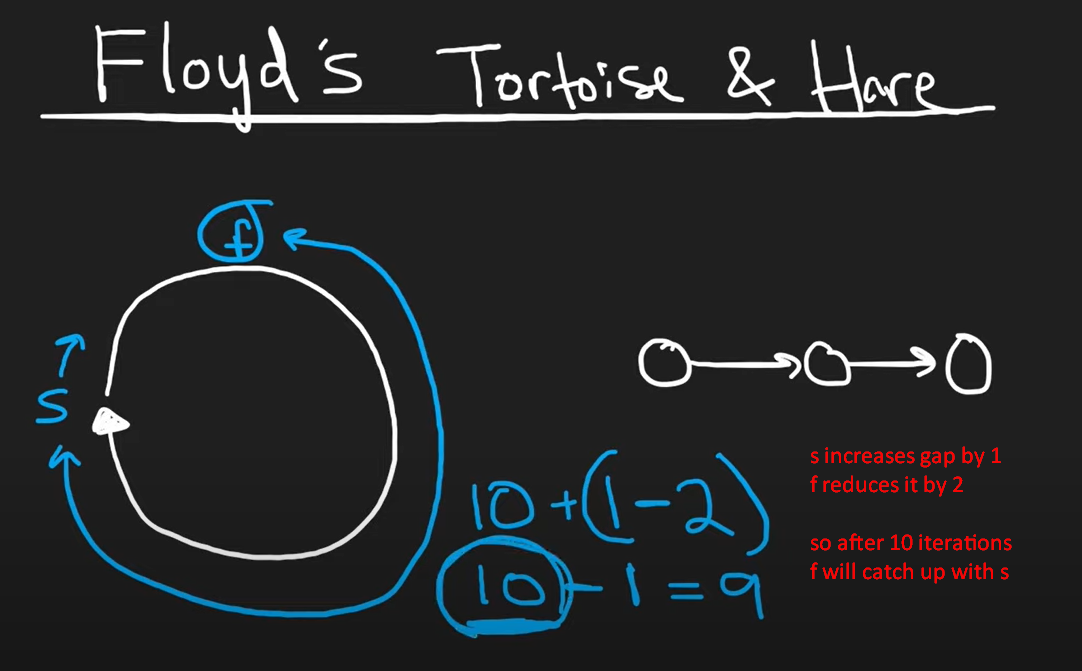 Floyd's Tortoise & Hare
f
s
10 + (1 - 2)
10 - 1 = 9
s increases gap by 1
f reduces it by 2
so after 10 iterations
f will catch up with s